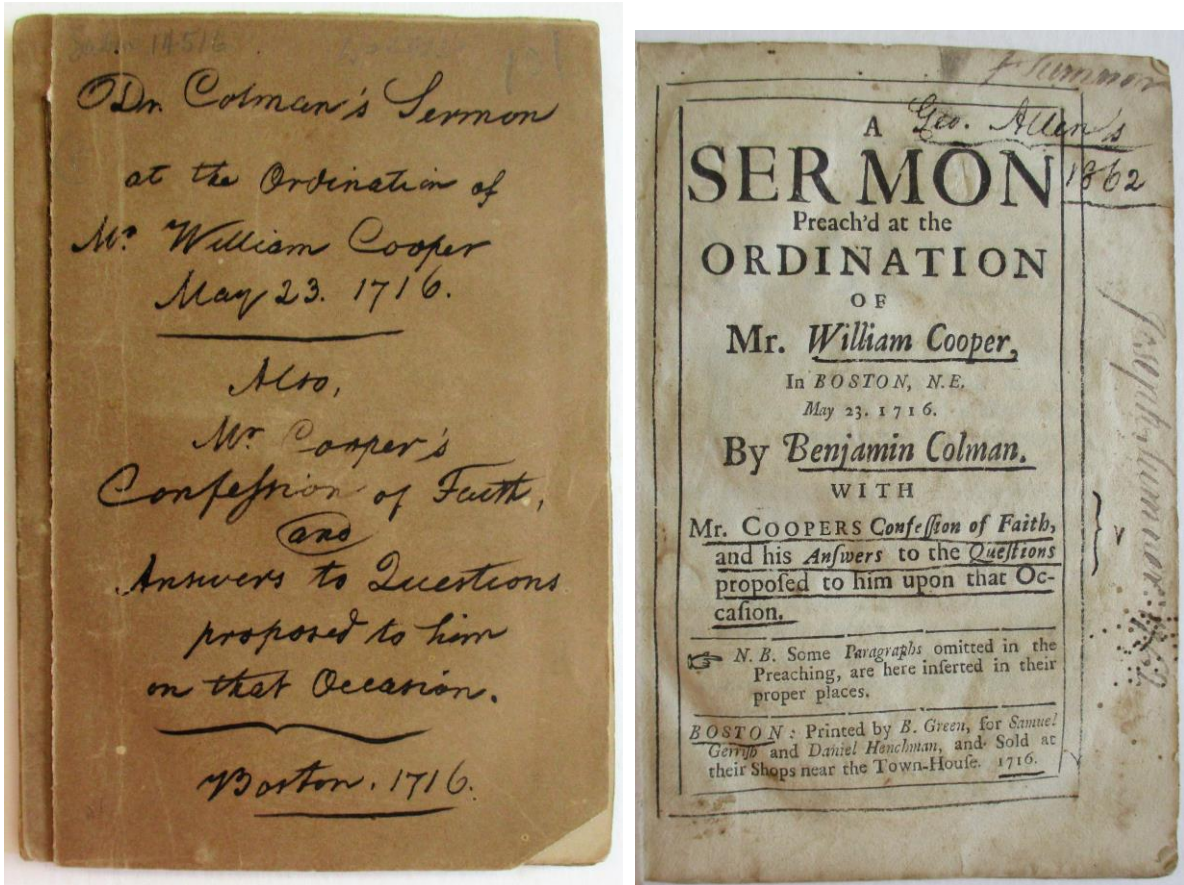 Dr. Colman's Sermon
at the Ordination of
Mr. William Cooper
May 23. 1716.
Also,
Mr. Cooper's
Confeſsion of Faith,
and
Answers to Questions
proposed to him
on that Occasion.
Boston. 1716.
Geo. Allen's
1862
A
SERMON
Preach'd at the
ORDINATION
OF
Mr. William Cooper,
In BOSTON, N.E.
May 23. 1716.
By Benjamin Colman.
WITH
Mr. COOPERS Confeſſion of Faith,
and his Anſwers to the Queſtions
propoſed to him upon that Oc-
caſion.
☞ N. B. Some Paragraphs omitted in the
Preaching, are here inſerted in their
proper places.
BOSTON: Printed by B. Green, for Samuel
Gerriſh and Daniel Henchman, and Sold at
their Shops near the Town-Houſe. 1716.
Joseph